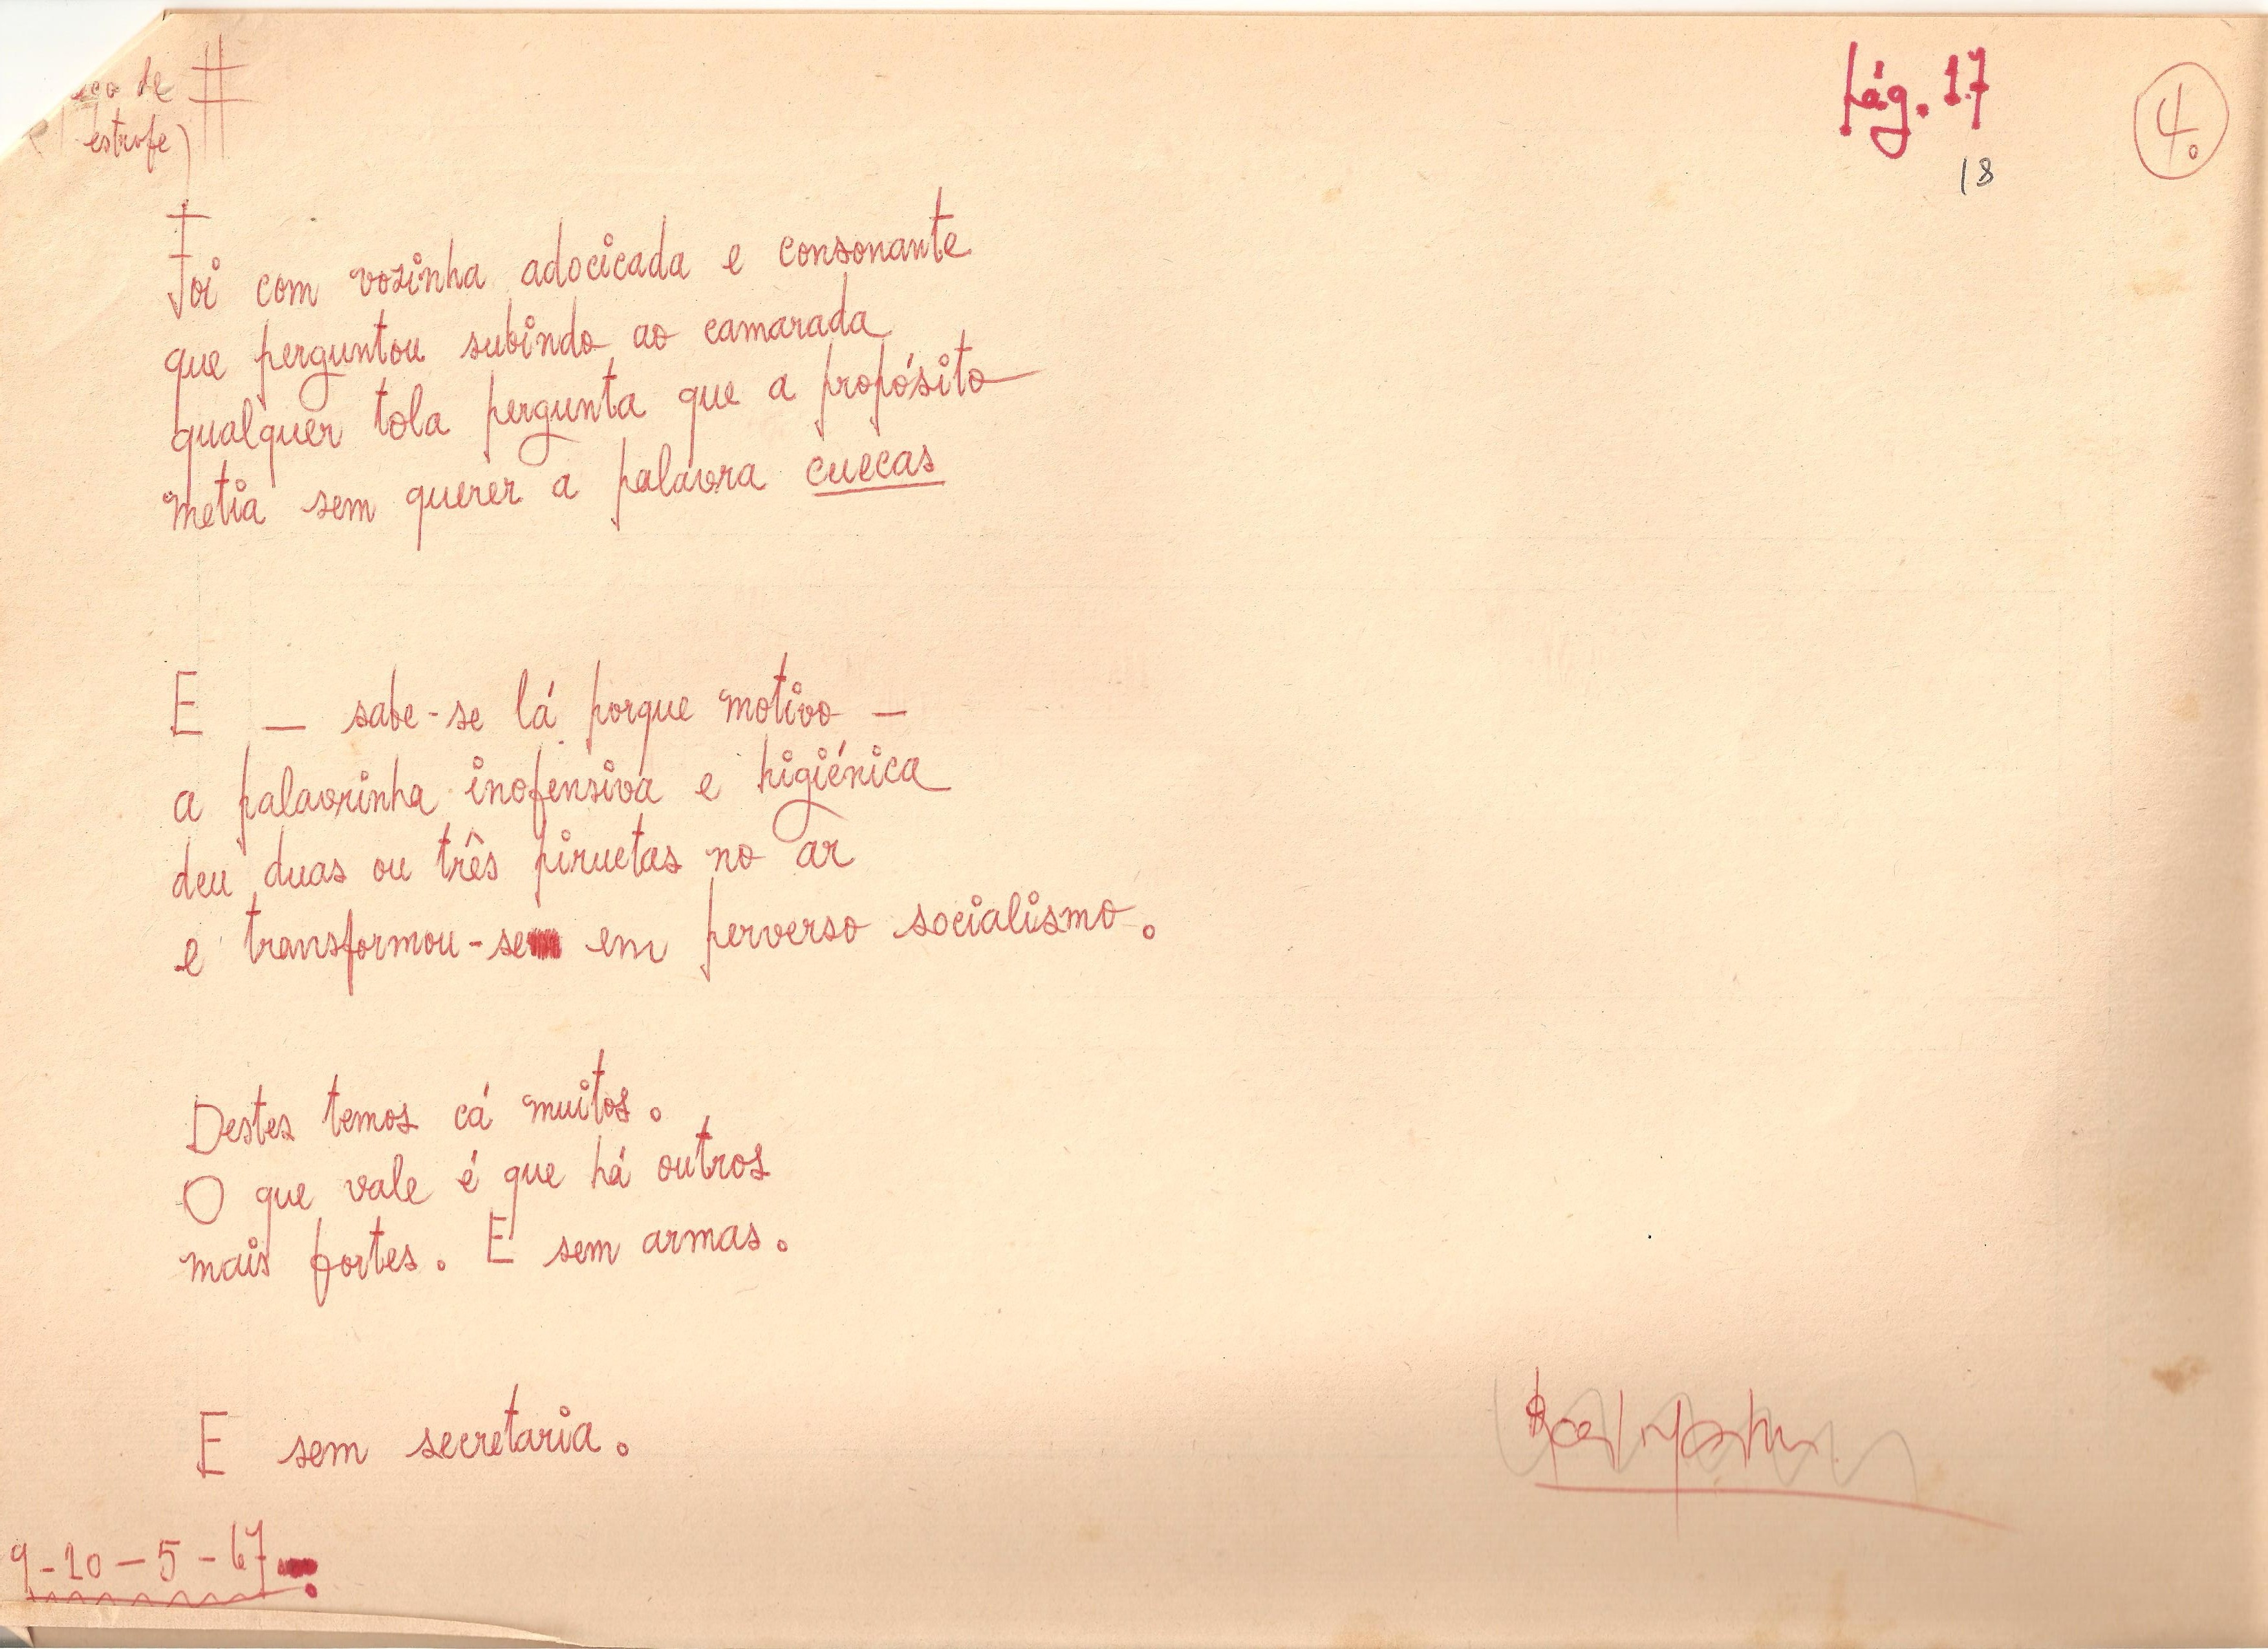 de #
estrofe)
pág. 17
18
4.
Foi com vozinha adocicada e consonante
que perguntou subindo ao camarada
qualquer tola pergunta que a propósito
metia sem querer a palavra cuecas
E — sabe-se lá porque motivo —
a palavrinha inofensiva e higiénica
deu duas ou três piruetas no ar
e transformou-se em perverso socialismo.
Destes temos cá muitos.
O que vale é que há outros
mais fortes. E sem armas.
E sem secretaria.
9-10-5-67